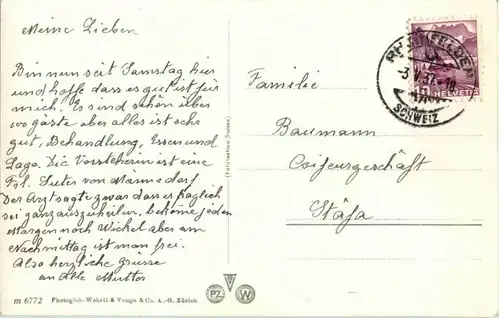 Meine Lieben
Bin nun seit Samstag hier
und hoffe dass es gut ist für
mich. Es sind schon über
gäste aber alles ist sehr
gut, Behandlung, Essen und
Lage. Die Vorsteherin ist eine
Frl. Suter von Männedorf
Der Arzt sagte zwar dass es fraglich
sei ganz auszuheilen, bekome jeden
Morgen noch Wickel aber am
Nachmittag ist man frei.
Also herzliche Grüsse
an Alle Mutter
m 6772 Photoglob-Wehrli & Vouga & Co. A.-G. Zürich
PZ W
RHEINFELDEN
3.V.37
SCHWEIZ
10 HELVETIA
Familie
Baumann
Coifeurgeschäft
Stäfa